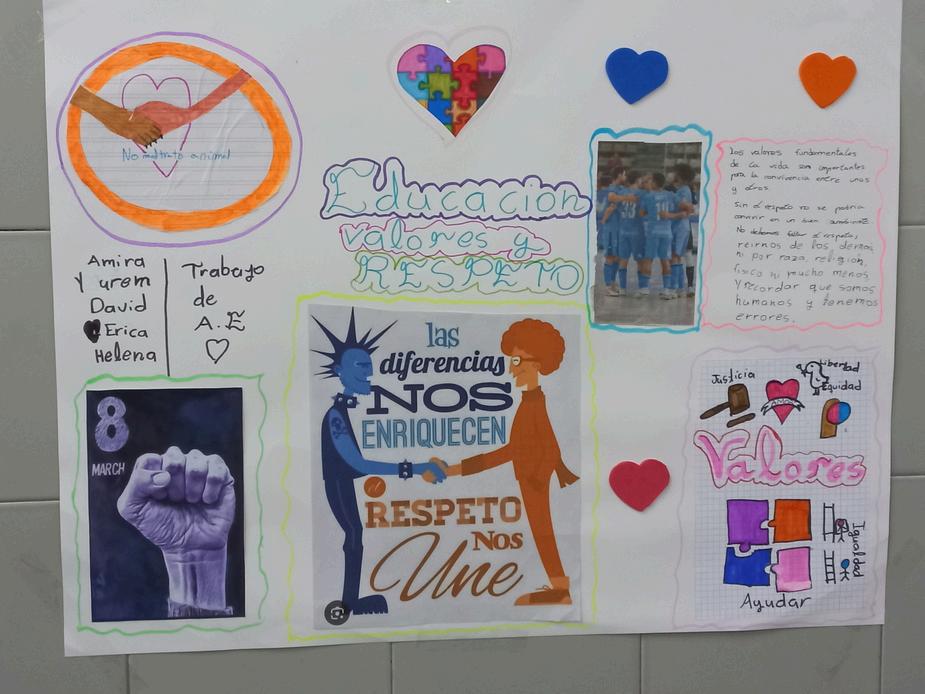 No maltrato animal
Educacion
valores y
RESPETO
Amira
Yurem
David
Erica
Helena
Trabajo
de
A.E
8
MARCH
las
diferencias
NOS
ENRIQUECEN
el
RESPETO
Nos
Une
Los valores fundamentales
de la vida son importantes
para la convivencia entre unos
y otros.
Sin el respeto no se podria
convivir en un buen
No debemos faltar el respeto,
reirnos de los demas
ni por raza, religión,
fisico ni mucho menos
Y recordar que somos
humanos y tenemos
errores.
Justicia
Libertad
Equidad
Valores
Igualdad
Ayudar